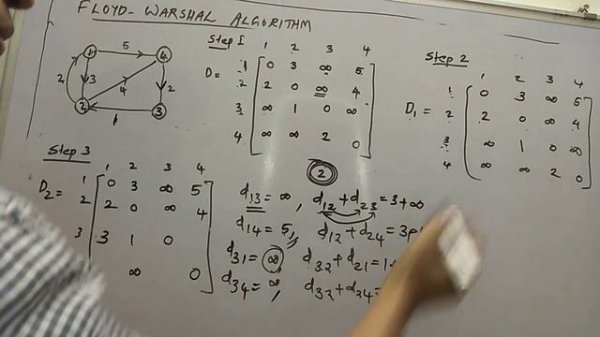 FLOYD-WARSHAL ALGORITHM
1 5 4
2 3 4 2
2 1 3
Step I
1 2 3 4
D= 1 0 3 ∞ 5
2 2 0 ∞ 4
3 ∞ 1 0 ∞
4 ∞ ∞ 2 0
Step 2
1 2 3 4
1 0 3 ∞ 5
D₁= 2 2 0 ∞ 4
3 ∞ 1 0 ∞
4 ∞ ∞ 2 0
Step 3
1 2 3 4
D₂= 1 0 3 ∞ 5
2 2 0 ∞ 4
3 3 1 0
∞ 0
2
d₁₃ = ∞, d₁₂+d₂₃=3+∞
d₁₄ = 5, d₁₂+d₂₄=3
d₃₁ = ∞, d₃₂+d₂₁=1
d₃₄ = ∞, d₃₂+d₂₄=